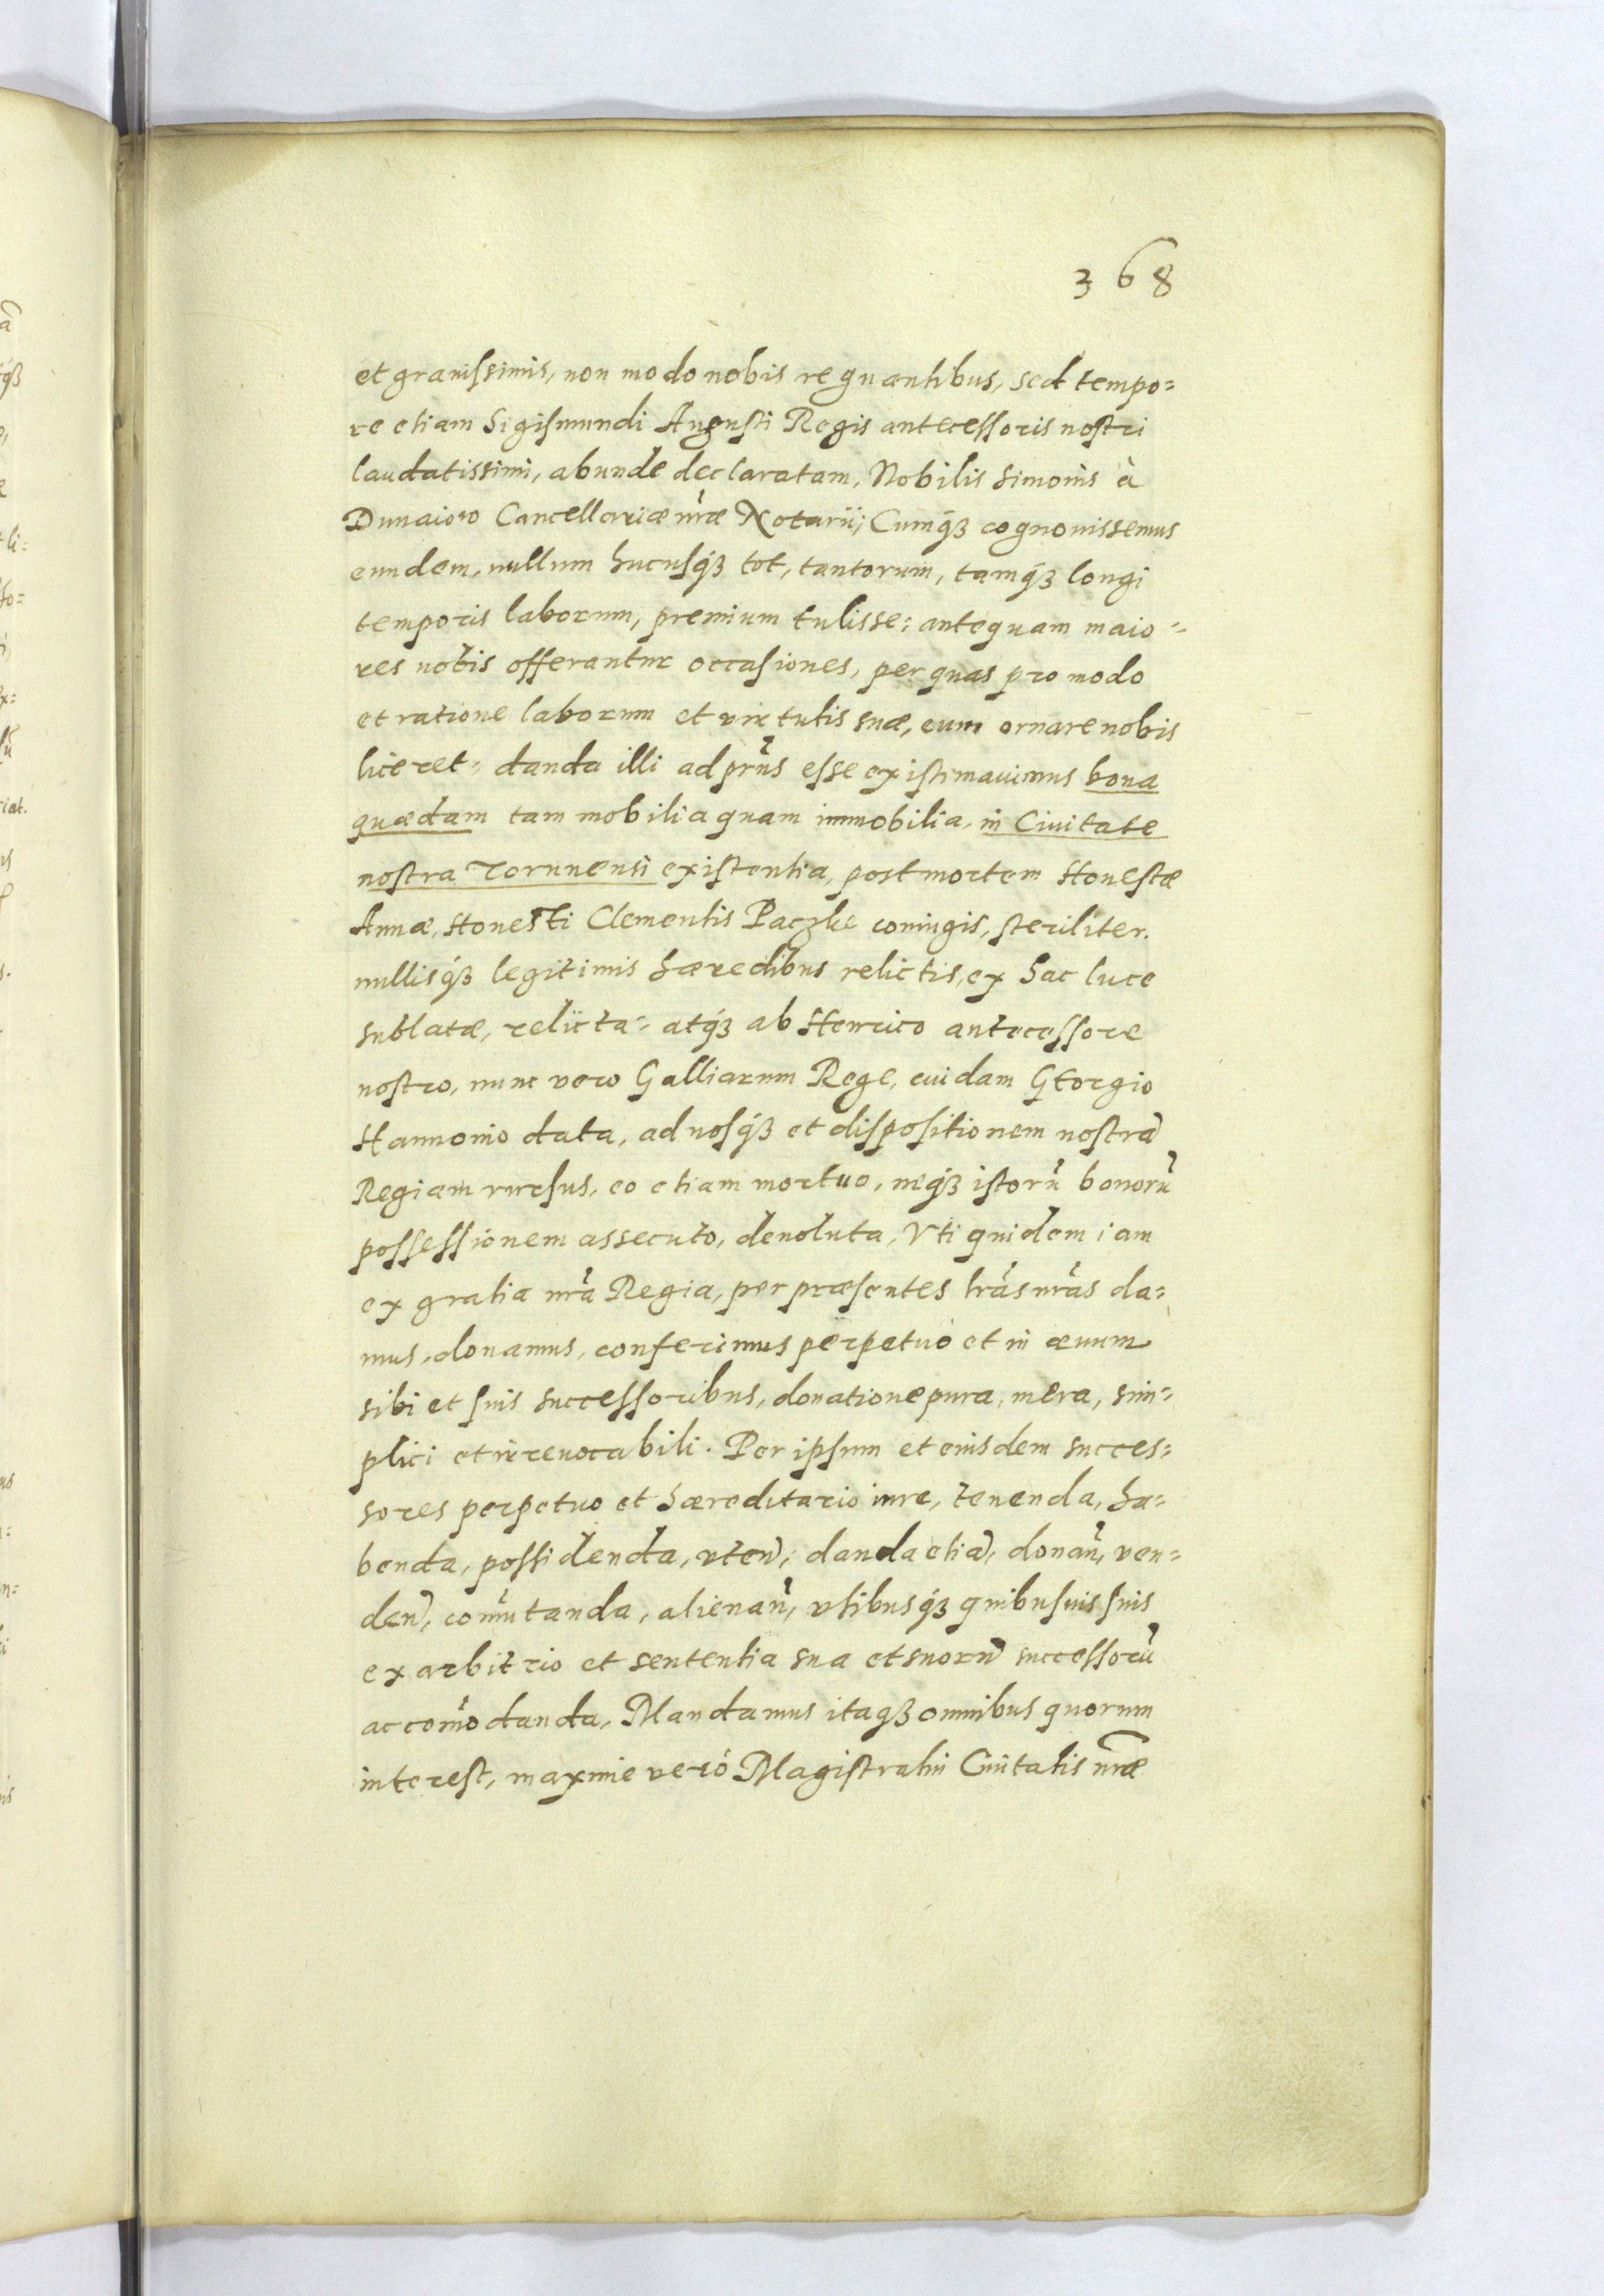 368
et grauissimis, non modo nobis regnantibus, sed tempo=
re etiam Sigismundi Augusti Regis antecessoris nostri
laudatissimi, abunde declaratam, Nobilis Simonis à
Dunaiow Cancellariæ nr̃æ Notarii; Cumq́ꝫ cognouissemus
eundem, nullum hucusq́ꝫ tot, tantorum, tamq́ꝫ longi
temporis laborum, premium tulisse: antequam maio=
res nobis offerantur occasiones, per quas pro modo
et ratione laborum et virtutis suæ, eum ornare nobis
liceret: danda illi ad prñs esse existimauimus bona
quædam tam mobilia quam immobilia, in Ciuitate
nostra Torunensi existentia, post mortem Honestæ
Annæ, Honesti Clementis Paczke coniugis, steriliter.
nullisq́ꝫ legitimis hæredibus relictis, ex hac luce
sublatæ, relicta: atq́ꝫ ab Henrico antecessore
nostro, nunc vero Galliarum Rege, cuidam Georgio
Hannonio data, ad nosq́ꝫ et dispositionem nostrã
Regiam rursus, eo etiam mortuo, neq́ꝫ istorũ bonorũ
possessionem assecuto, deuoluta, Vti quidem iam
ex gratia nr̃a Regia, per præsentes lr̃as nr̃as da=
mus, donamus, conferimus perpetuò et in æuum
sibi et suis successoribus, donatione pura, mera, sim=
plici et irreuocabili. Per ipsum et eiusdem succes=
sores perpetuo et hæreditario iure, tenenda, ha=
benda, possidenda, vteñ, danda etiã, donañ, ven=
deñ, com̃utanda, alienañ, vsibusq́ꝫ quibusuis suis
ex arbitrio et sententia sua et suorũ successorũ
accom̃odanda, Mandamus itaqꝫ omnibus quorum
interest, maxime verò Magistratui Ciuitatis nr̃æ